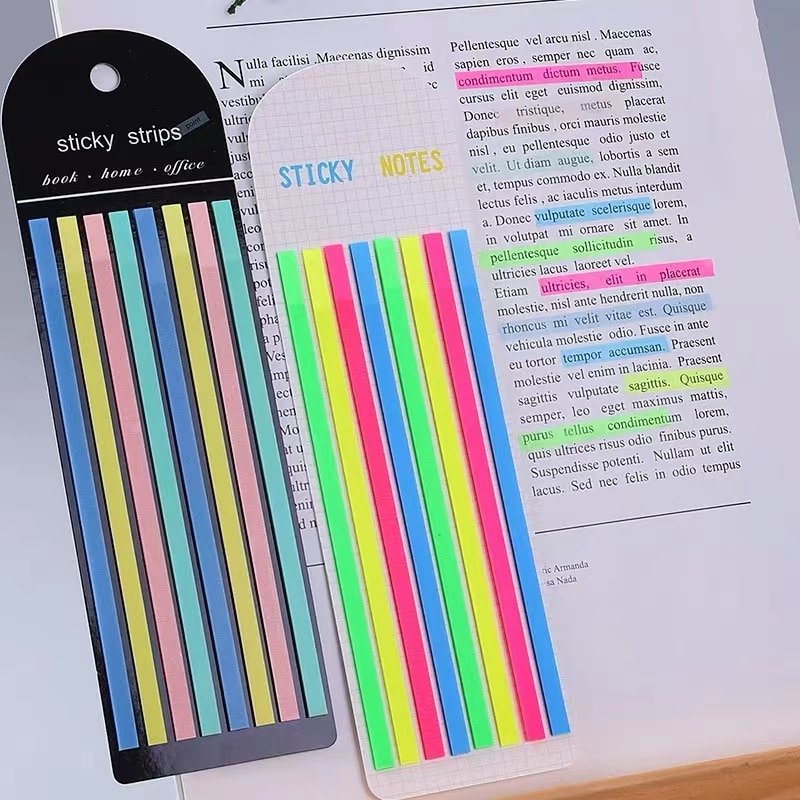 sticky strips
book · home · office
STICKY NOTES
Nulla facilisi .Maecenas dignissim
mi
id
Pellentesque vel arcu nisl . Maecenas
sapien eros , semper nec quam ac,
condimentum dictum metus. Fusce
cursus elit eget euismod dignissim,
Donec tristique, metus placerat
dapibus finibus , orci mauris molestie
nisl , eu pellentesque odio justo et
velit. Ut diam augue, lobortis a sem
et, tempus commodo ex. Nulla blandit
lectus felis , ac iaculis metus interdum
a. Donec vulputate scelerisque lorem,
in volutpat mi ornare sit amet. In
pellentesque sollicitudin risus, a
ultricies lacus laoreet vel.
Etiam ultricies, elit in placerat
molestie, nisl ante hendrerit nulla, non
rhoncus mi velit vitae est. Quisque
vehicula molestie odio. Fusce in ante
eu tortor tempor accumsan. Praesent
molestie vel enim in lacinia. Praesent
sagittis vulputate sagittis. Quisque
semper, leo eget maximus mattis,
purus tellus condimentum lorem,
quis ultrices risus odio finibus purus.
Suspendisse potenti. Nullam ut elit
lacus. Sed nec felis in odio tempus
Armanda
Nada